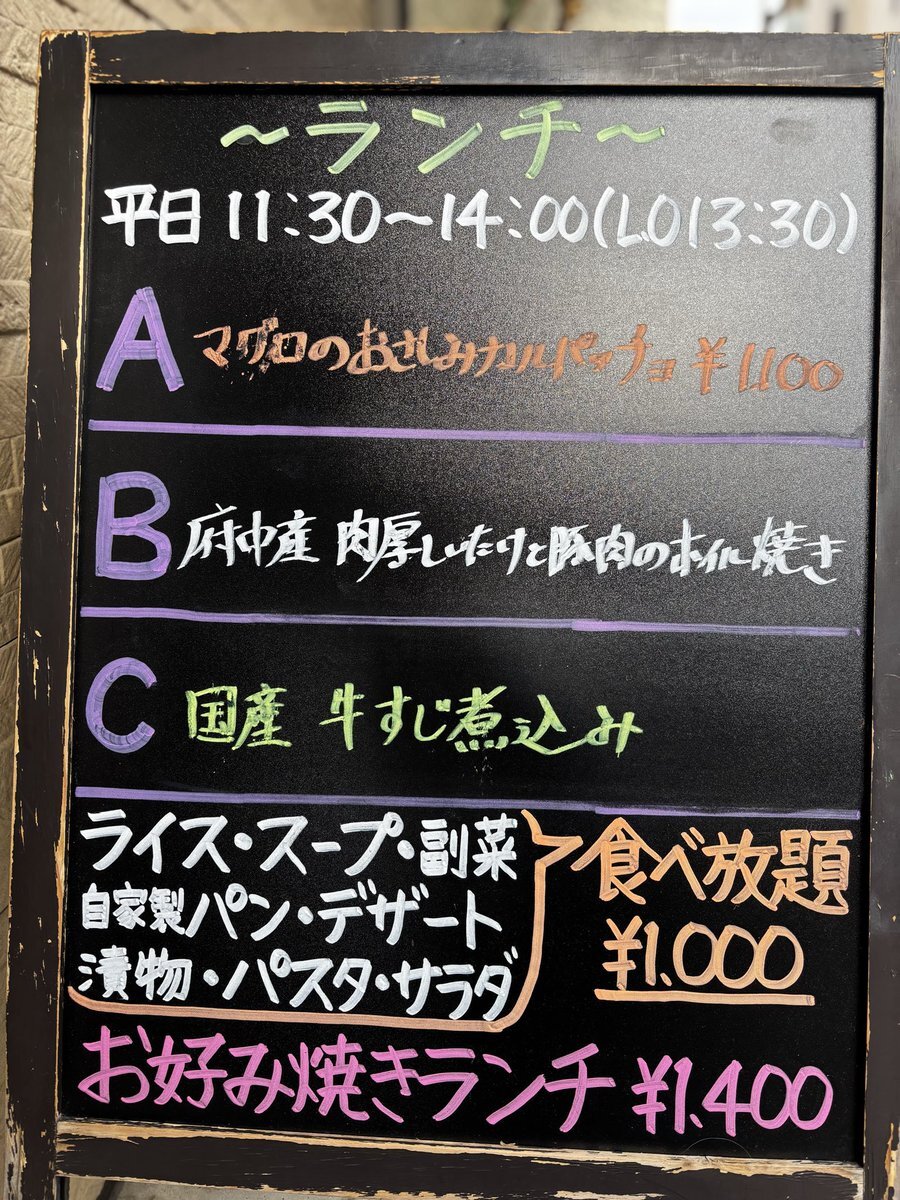 ～ランチ～
平日 11:30～14:00(L.O13:30)
A マグロのおさしみカルパッチョ ¥1100
B 府中産 肉厚しいたけと豚肉のホイル焼き
C 国産 牛すじ煮込み
ライス・スープ・副菜
自家製パン・デザート
漬物・パスタ・サラダ
食べ放題
¥1.000
お好み焼きランチ ¥1.400